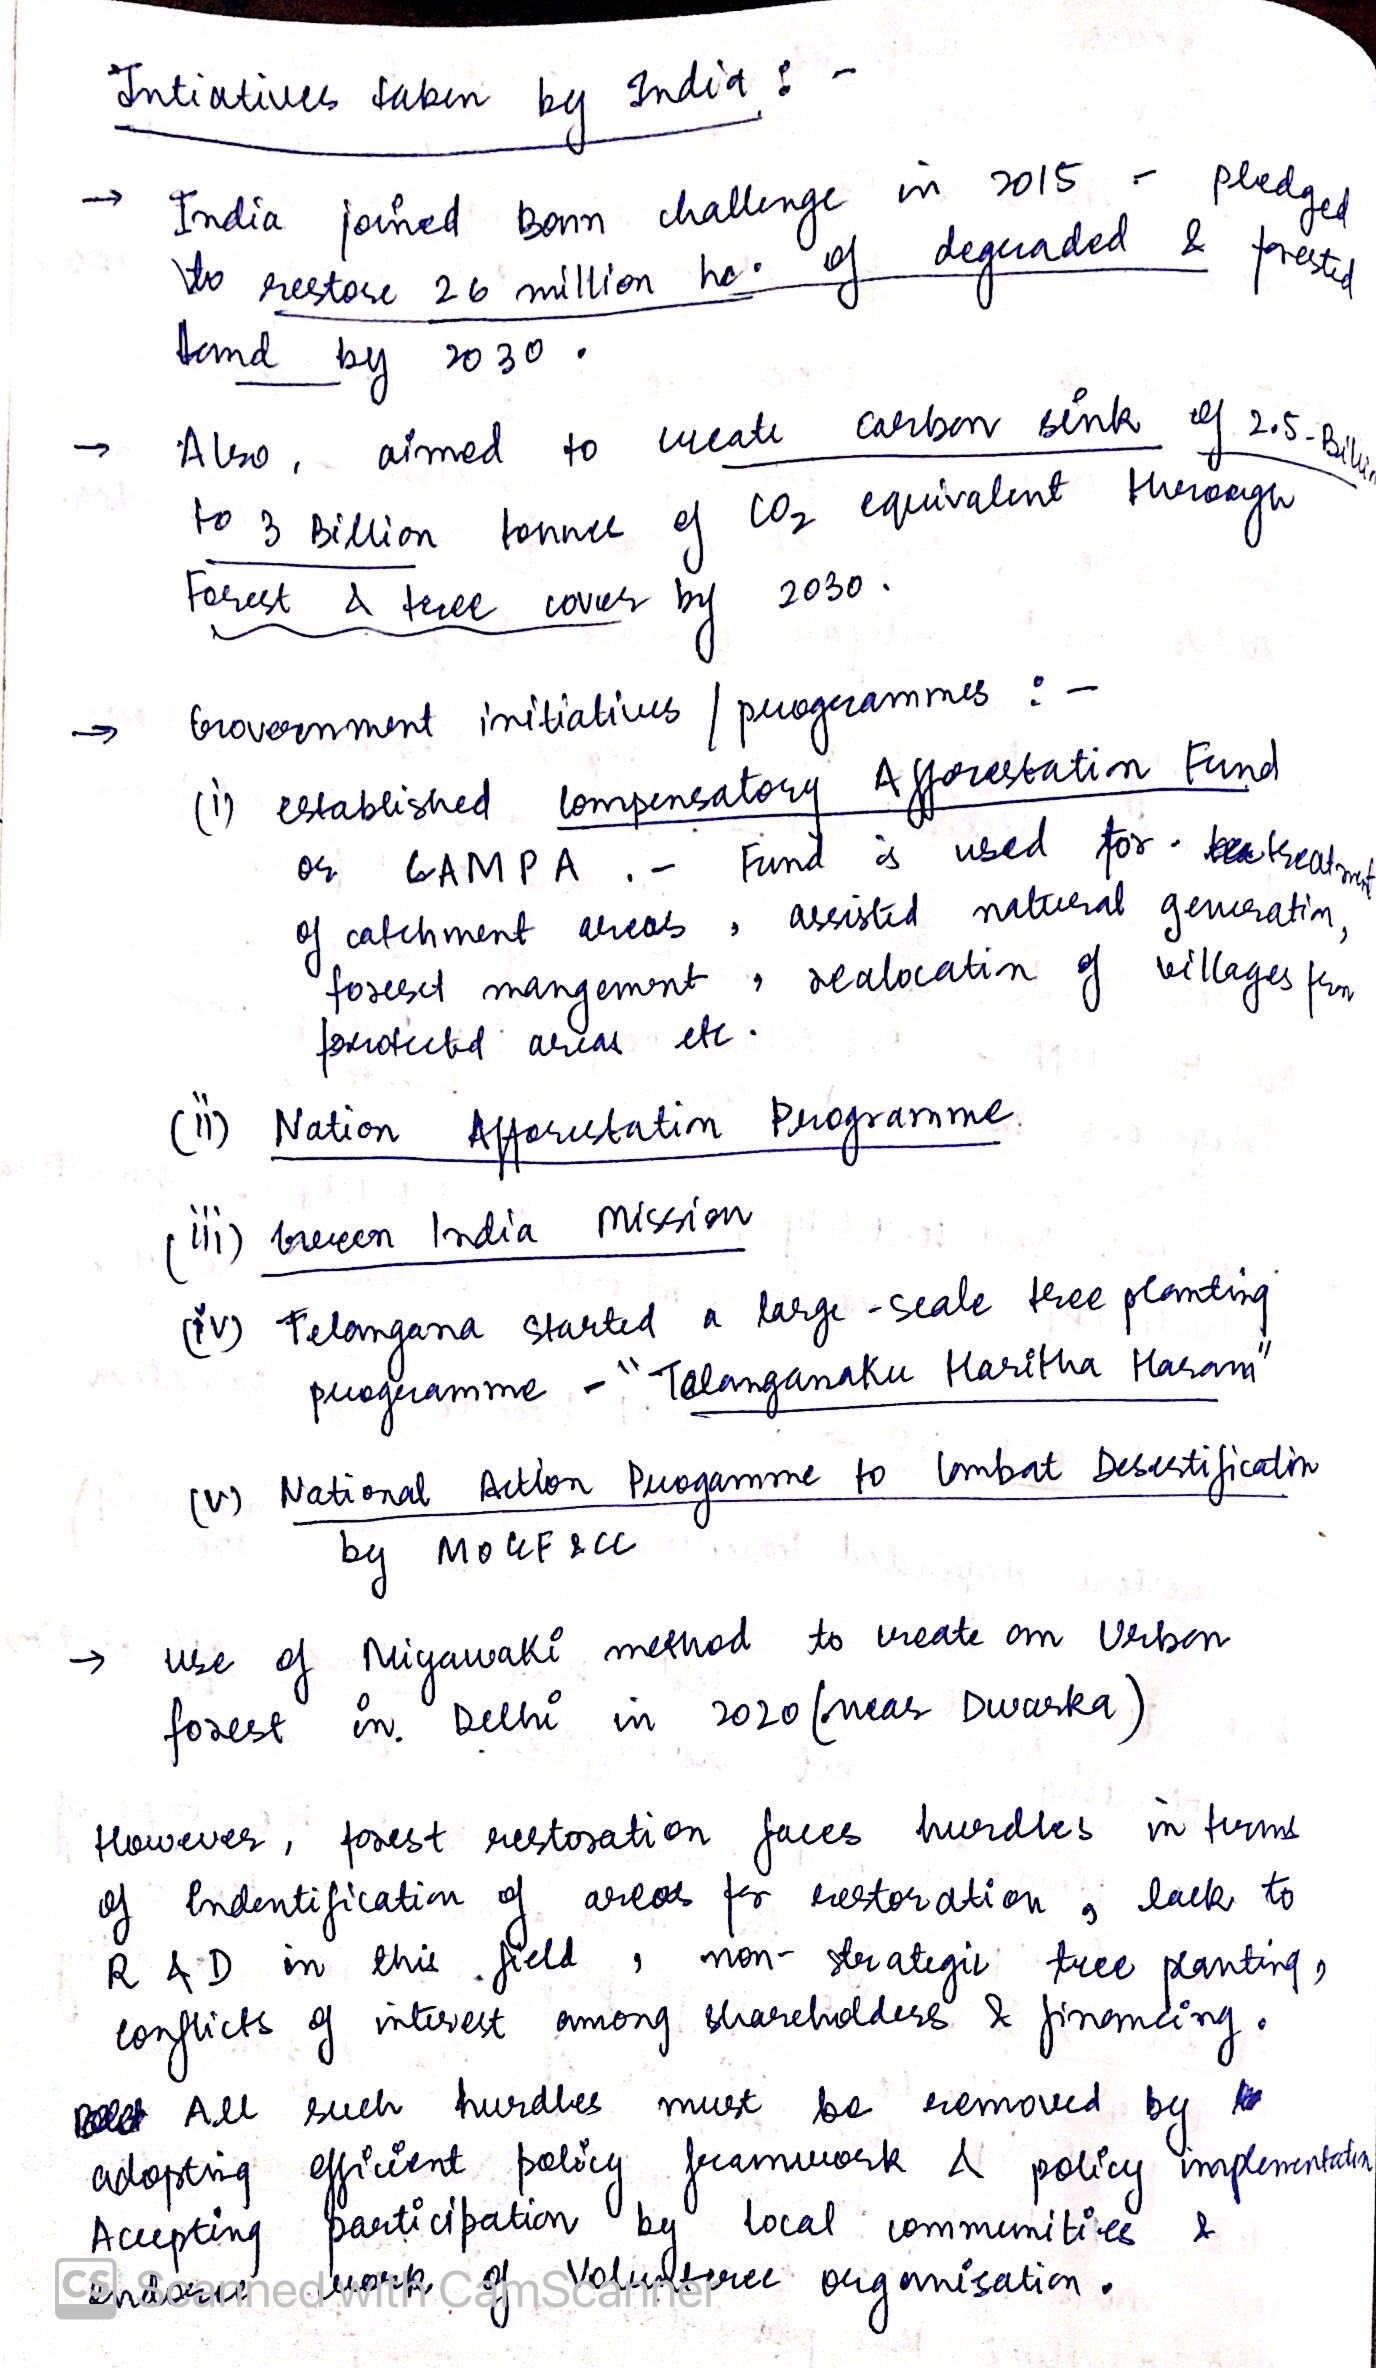 Intiatives taken by India :-
→ India joined Bonn challenge in 2015 - pledged
to restore 26 million ha. of degraded & forested
land by 2030.
→ Also, aimed to create carbon sink of 2.5-Billion
to 3 Billion tonnes of CO2 equivalent through
Forest & tree cover by 2030.
→ Government initiatives / programmes :-
(i) established Compensatory Afforestation Fund
or CAMPA. - Fund is used for treatment
of catchment areas, assisted natural generation,
forest mangement, realocation of villages from
protected areas etc.
(ii) Nation Afforestation Programme.
(iii) Green India Mission
(iv) Telangana started a large-scale tree planting
programme - "Talanganaku Haritha Haram"
(v) National Action Progamme to Combat Desertification
by MoEF&CC
→ Use of Miyawaki method to create an Urban
forest in Delhi in 2020 (near Dwarka)
However, forest restoration faces hurdles in terms
of Indentification of areas for restoration, lack to
R & D in this field, non-strategic tree planting,
conflicts of interest among shareholders & financing.
All such hurdles must be removed by
adopting efficient policy framework & policy implementation
Accepting participation by local communities &
endorse work of Volunteree organisation.
CS Scanned with CamScanner